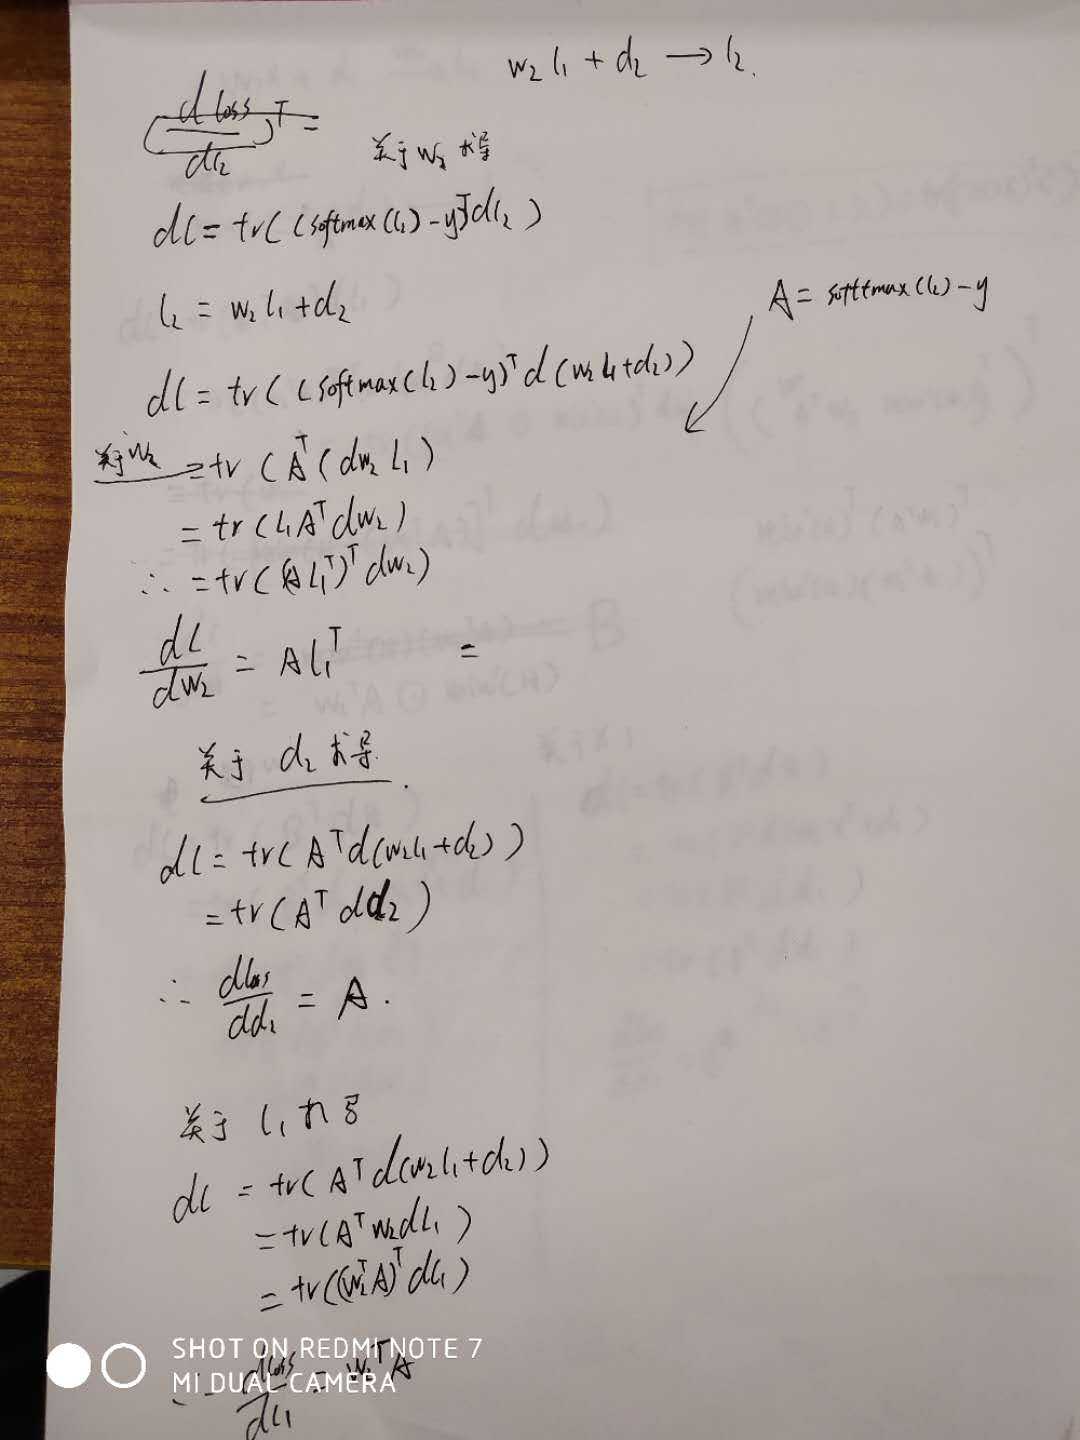 w₂ l₁ + d₂ → l₂.
(d loss / dl₂)ᵀ =
关于 w₂ 求导
dl = tr((softmax(l₂) - y)ᵀ dl₂)
l₂ = w₂ l₁ + d₂
A = softtmax(l₂) - y
dl = tr((softmax(l₂) - y)ᵀ d(w₂ l₁ + d₂))
关于 w₂ = tr(Aᵀ(dw₂ l₁)
= tr(l₁ Aᵀ dw₂)
∴ = tr((A l₁ᵀ)ᵀ dw₂)
dl / dw₂ = A l₁ᵀ =
关于 d₂ 求导.
dl = tr(Aᵀ d(w₂ l₁ + d₂))
= tr(Aᵀ dd₂)
∴ dloss / dd₂ = A.
关于 l₁ 求导
dl = tr(Aᵀ d(w₂ l₁ + d₂))
= tr(Aᵀ w₂ dl₁)
= tr((w₂ᵀ A)ᵀ dl₁)
∴ dloss / dl₁ = w₂ᵀ A
SHOT ON REDMI NOTE 7
MI DUAL CAMERA